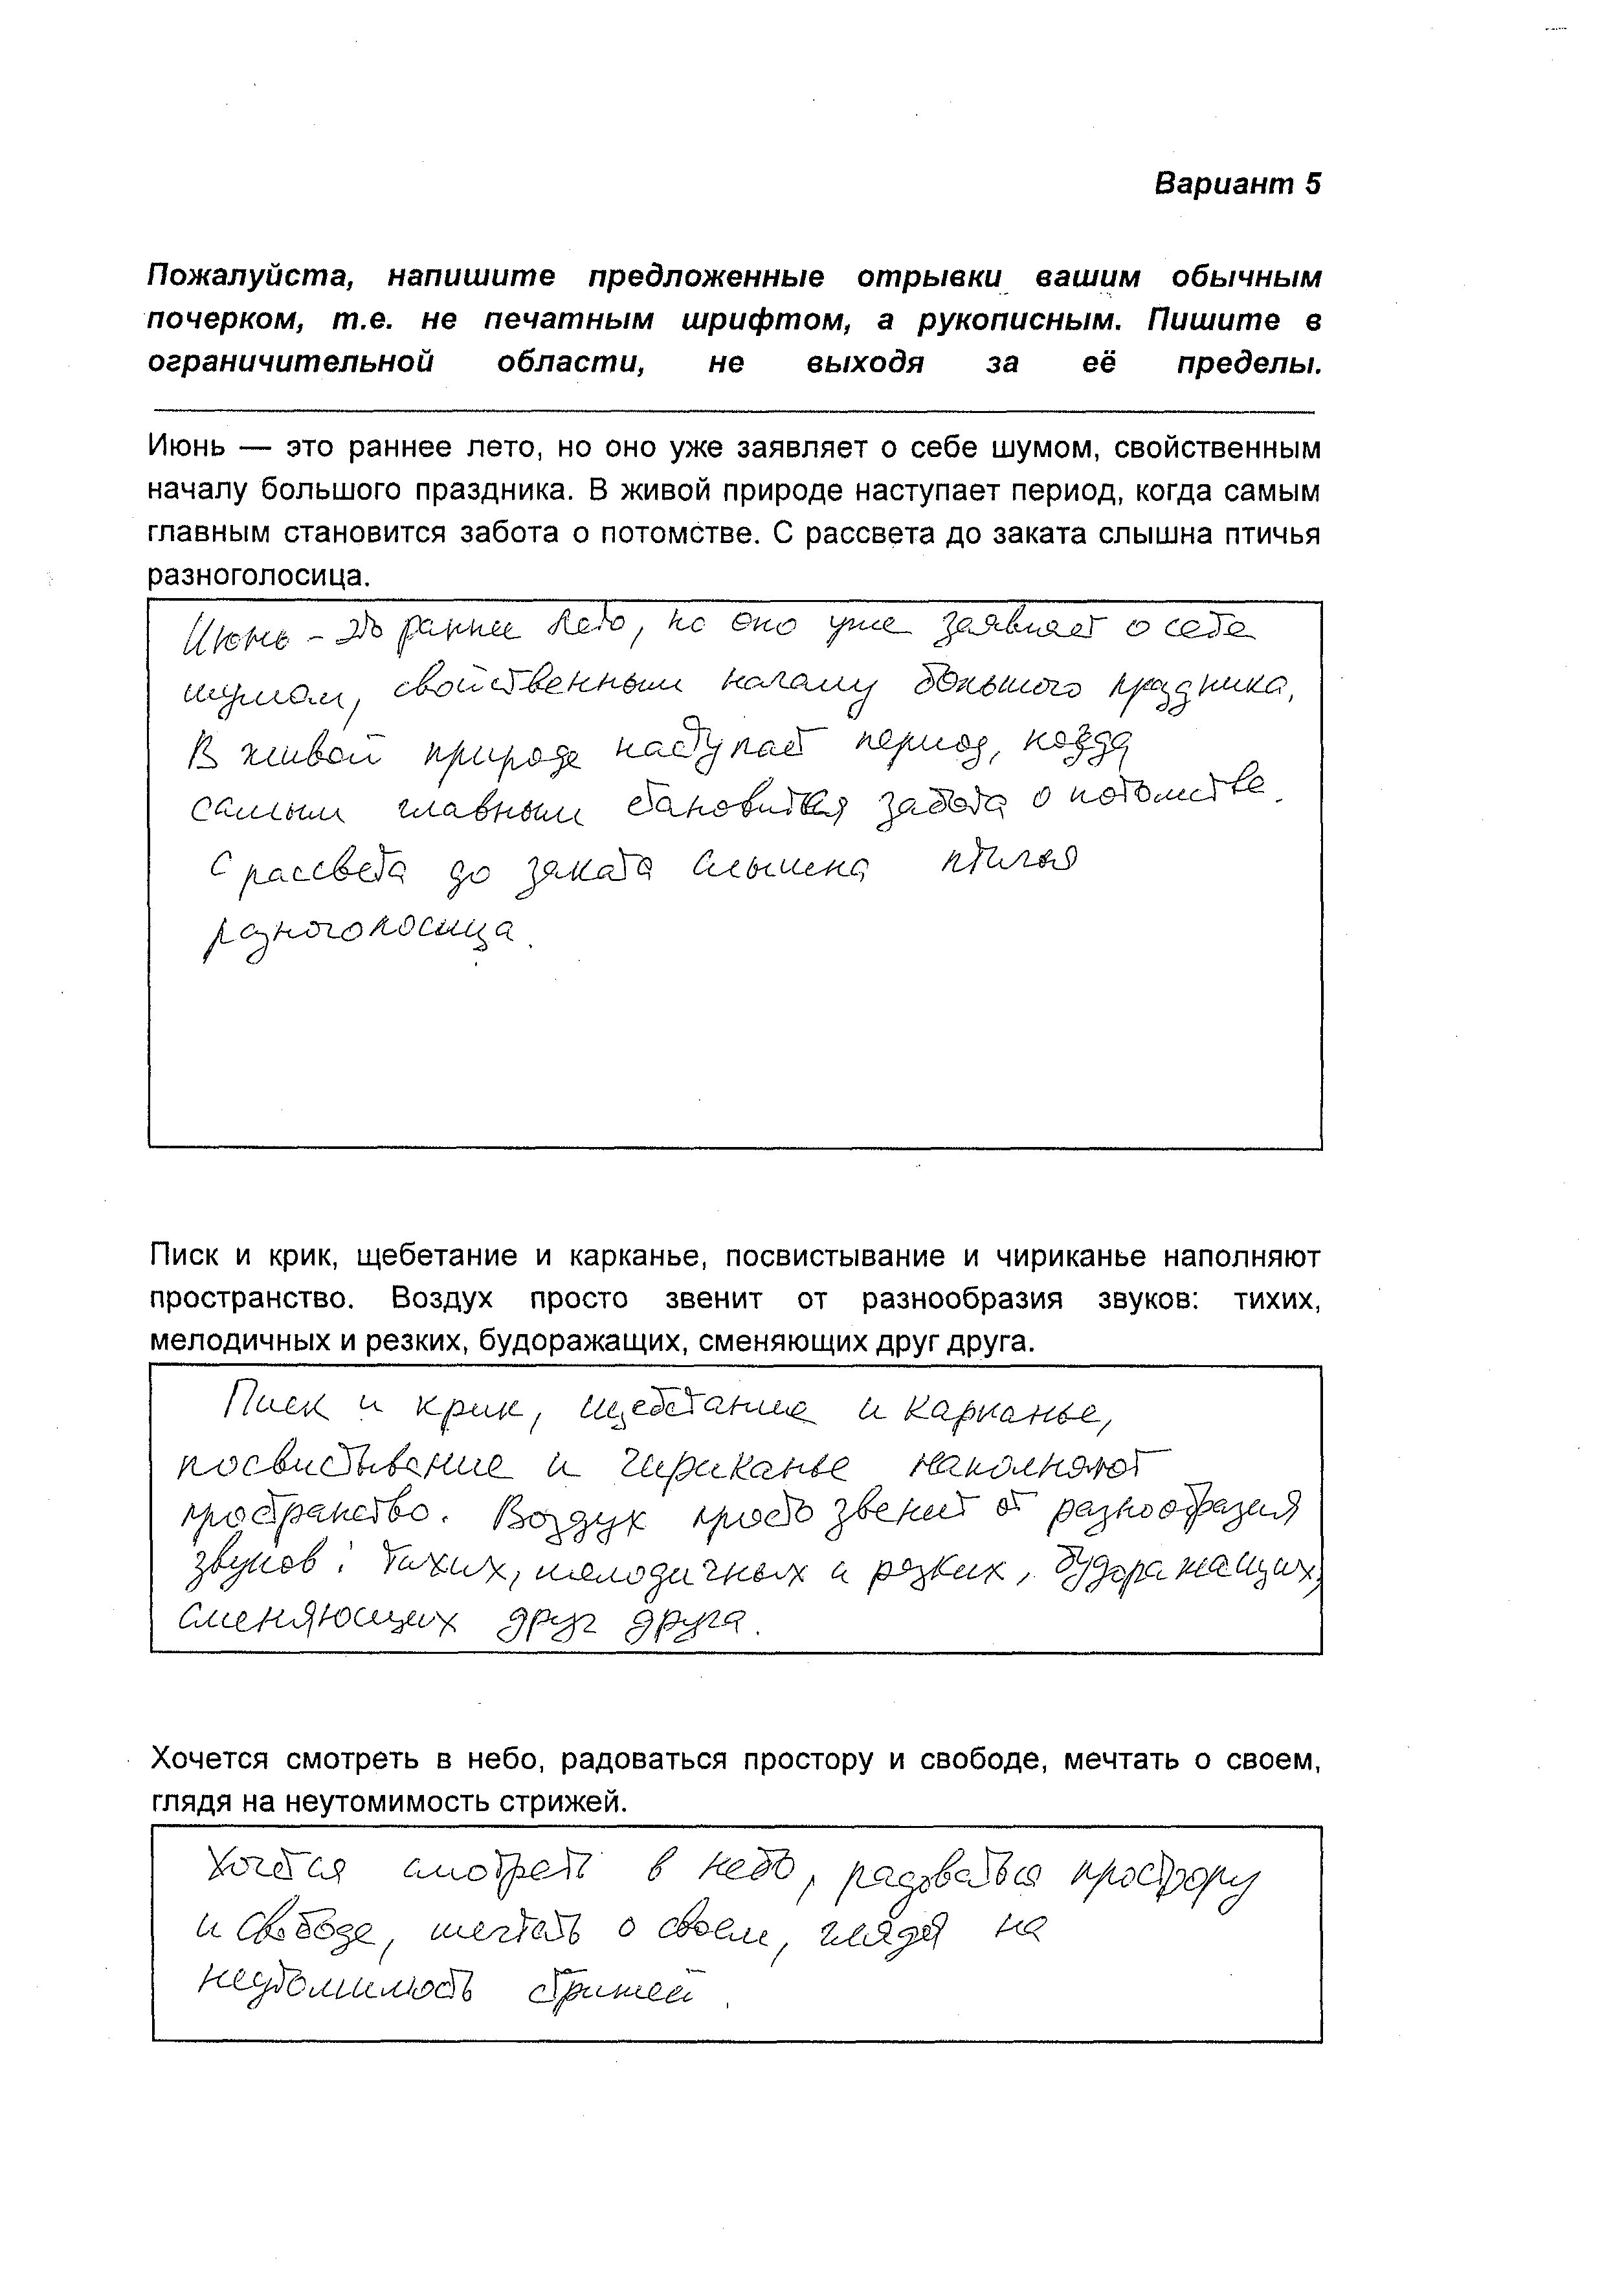 Вариант 5
Пожалуйста, напишите предложенные отрывки вашим обычным
почерком, т.е. не печатным шрифтом, а рукописным. Пишите в
ограничительной области, не выходя за её пределы.
Июнь — это раннее лето, но оно уже заявляет о себе шумом, свойственным
началу большого праздника. В живой природе наступает период, когда самым
главным становится забота о потомстве. С рассвета до заката слышна птичья
разноголосица.
Июнь - это раннее лето, но оно уже заявляет о себе
шумом, свойственным началу большого праздника.
В живой природе наступает период, когда
самым главным становится забота о потомстве.
С рассвета до заката слышна птичья
разноголосица.
Писк и крик, щебетание и карканье, посвистывание и чириканье наполняют
пространство. Воздух просто звенит от разнообразия звуков: тихих,
мелодичных и резких, будоражащих, сменяющих друг друга.
Писк и крик, щебетание и карканье,
посвистывание и чириканье наполняют
пространство. Воздух просто звенит от разнообразия
звуков: тихих, мелодичных и резких, будоражащих,
сменяющих друг друга.
Хочется смотреть в небо, радоваться простору и свободе, мечтать о своем,
глядя на неутомимость стрижей.
Хочется смотреть в небо, радоваться простору
и свободе, мечтать о своем, глядя на
неутомимость стрижей.